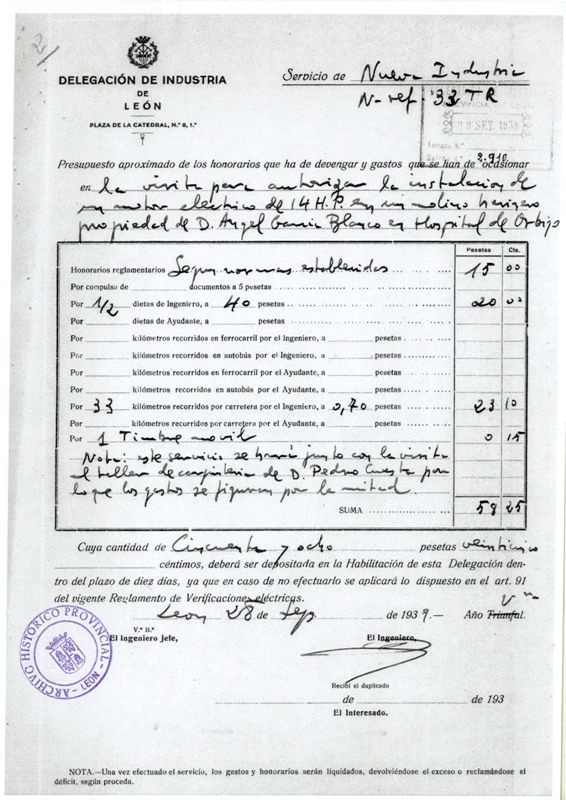 2
DELEGACIÓN DE INDUSTRIA
DE
LEÓN
PLAZA DE LA CATEDRAL, N.° 8, 1.°
Servicio de Nueva Industria
N- ref. 33 TR
SET. 1939
2.910
Presupuesto aproximado de los honorarios que ha de devengar y gastos que se han de ocasionar
en la visita para autorizar la instalacion de
un motor electrico de 14 H.P. en un molino harinero
propiedad de D. Angel Garcia Blanco en Hospital de Orbigo
Pesetas Cts.
Honorarios reglamentarios Segun normas establecidas 15 00
Por compulsa de documentos a 5 pesetas
Por 1/2 dietas de Ingeniero, a 40 pesetas 20 00
Por dietas de Ayudante, a pesetas
Por kilómetros recorridos en ferrocarril por el Ingeniero, a pesetas
Por kilómetros recorridos en autobús por el Ingeniero, a pesetas
Por kilómetros recorridos en ferrocarril por el Ayudante, a pesetas
Por kilómetros recorridos en autobús por el Ayudante, a pesetas
Por 33 kilómetros recorridos por carretera por el Ingeniero, a 0,70 pesetas 23 10
Por kilómetros recorridos por carretera por el Ayudante, a pesetas
Por 1 Timbre movil 0 15
Nota: este servicio se hará junto con la visita
al taller de carpinteria de D. Pedro Cuesta por
lo que los gastos se figuran por la mitad.
SUMA 58 25
Cuya cantidad de Cincuenta y ocho pesetas veinticinco
céntimos, deberá ser depositada en la Habilitación de esta Delegación den-
tro del plazo de diez días, ya que en caso de no efectuarlo se aplicará lo dispuesto en el art. 91
del vigente Reglamento de Verificaciones eléctricas.
Leon 28 de Sep. de 1939.— Año Triunfal.
V.° B.°
El Ingeniero Jefe,
El Ingeniero,
Recibí el duplicado
de de 193
El Interesado.
ARCHIVO HISTÓRICO PROVINCIAL - LEÓN
NOTA.—Una vez efectuado el servicio, los gastos y honorarios serán liquidados, devolviéndose el exceso o reclamándose el
déficit, según proceda.